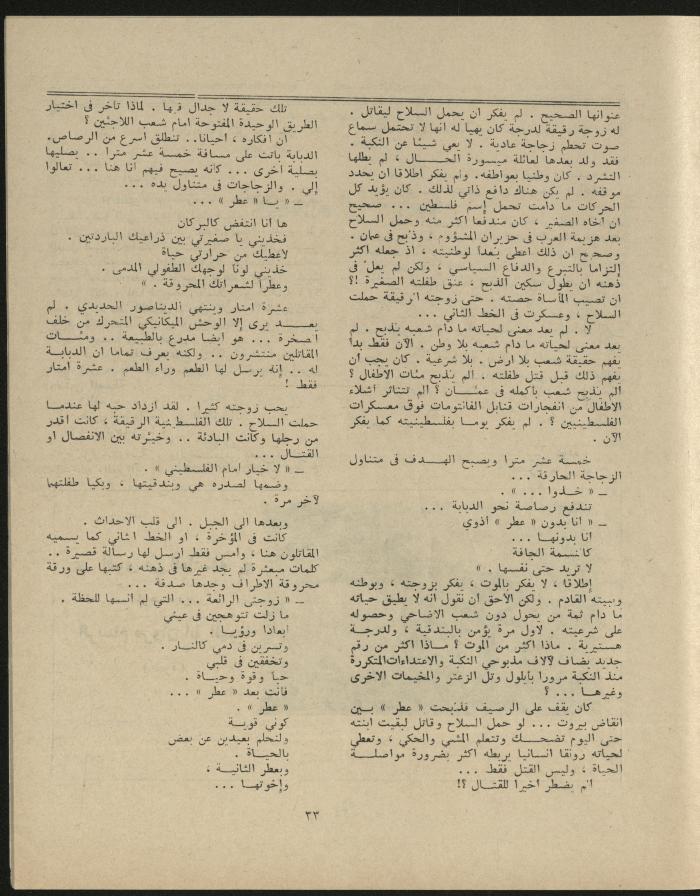 عنوانها الصحيح . لم يفكر ان يحمل السلاح ليقاتل .
له زوجة رقيقة لدرجة كان يهيأ له انها لا تحتمل سماع
صوت تحطم زجاجة عادية . لا يعي شيئا عن النكبة .
فقد ولد بعدها لعائلة ميسورة الحـــال ، لم يطلها
التشرد . كان وطنيا بعواطفه. ولم يفكر اطلاقا ان يحدد
موقفه . لم يكن هناك دافع ذاتي لذلك . كان يؤيد كل
الحركات ما دامت تحمل إسم فلسطين ... صحيح
ان أخاه الصغير ، كان مندفعا اكثر منه وحمل السلاح
بعد هزيمة العرب في حزيران المشؤوم ، وذبح في عمان .
وصحيح ان ذلك اعطى بعداً لوطنيته ، اذ جعله اكثر
إلتزاما بالتبرع والدفاع السياسي ، ولكن لم يعلُ في
ذهنه ان يطول سكين الذبح ، عنق طفلته الصغيرة ؟!
ان تصيب المأساة حصته . حتى زوجته الرقيقة حملت
السلاح ، وعسكرت في الخط الثاني ...
لا . لم يعد معنى لحياته ما دام شعبه يذبح . لم
يعد معنى لحياته ما دام شعبه بلا وطن . الآن فقط بدأ
يفهم حقيقة شعب بلا ارض . بلا شرعية . كان يجب ان
يفهم ذلك قبل قتل طفلته . الم يذبح مئات الأطفال ؟
ألم يذبح شعب بأكمله في عمّـــان ؟ ألم تتناثر أشلاء
الاطفال من انفجارات قنابل الفانتومات فوق معسكرات
الفلسطينيين ؟ . لم يفكر يومـا بفلسطينيته كما يفكر
الآن .
خمسة عشر مترا ويصبح الهـدف في متناول
الزجاجة الحارقة ...
ــ « خـذوا ... » .
تندفع رصاصة نحو الدبابة ...
ــ « انا بدون « عطر » أذوي
أنا بدونهـا ...
كالنسمة الجافة
لا تريد حتى نفسها . »
إطلاقا ، لا يفكر بالموت ، يفكر بزوجته ، وبوطنه
وببيته القادم . ولكن الأحق ان نقول انه لا يطيق حياته
ما دام ثمة من يحول دون شعب الاضاحي وحصوله
على شرعيته . لاول مرة يؤمن بالبندقية ، ولدرجـة
هستيرية . ماذا اكثر من الموت ؟ مـاذا اكثر من رقم
جديد يضاف لآلاف مذبوحي النكبة والاعتداءات المتكررة
منذ النكبة مرورا بأيلول وتل الزعتر والمخيمات الاخرى
وغيرهـا ... ؟
كان يقف على الرصيف فذبحت « عطر » بــين
انقاض بيروت ... لو حمل السلاح وقاتل لبقيت ابنته
حتى اليوم تضحـــك وتتعلم المشي والحكي ، وتعطي
لحياته رونقا انسانيا يربطه اكثر بضرورة مواصلــة
الحياة ، وليس القتل فقط ...
ألم يضطر أخيرا للقتــال ؟!
تلك حقيقة لا جدال فيها . لماذا تأخر في اختيار
الطريق الوحيدة المفتوحة امام شعب اللاجئين ؟
ان أفكاره ، أحيانا.. تنطلق أسرع من الرصاص.
الدبابة باتت على مسافة خمسة عشر مترا .. يصليها
بصلية أخرى ... كأنه يصيح فيهم أنا هنا ... تعالوا
إلي . والزجاجات في متناول يده ...
ــ « يـا « عطر » ...
ها أنا انتفض كالبركان
فخذيني يا صغيرتي بين ذراعيك الباردتين .
لأعطيك من حرارتي حياة
خذيني لونا لوجهك الطفولي المدمى .
وعطراً لشعراتك المحروقة . »
عشرة امتار وينتهي الديناصور الحديدي . لم
يعـــد يرى إلا الوحش الميكانيكي المتحرك من خلف
الصخرة ... هو أيضا مدرع بالطبيعة .. ومئــات
المقاتلين منتشرون .. ولكنه يعرف تماما ان الدبابــة
له .. إنه يرسل لها الطعم وراء الطعم . عشرة امتار
فقط !
يحب زوجته كثيرا . لقد ازداد حبه لها عندمـا
حملت السلاح . تلك الفلسطينية الرقيقة ، كانت أقدر
من رجلها وكانت البادئة .. وخيرته بين الانفصال او
القتــال ...
ــ « لا خيار امام الفلسطيني » .
وضمها لصدره هي وبندقيتها ، وبكيا طفلتهما
لآخر مرة .
وبعدها الى الجبل . الى قلب الاحداث .
كانت في المؤخرة ، او الخط الثاني كما يسميه
المقاتلون هنا ، وأمس فقط ارسل لها رسالة قصيرة ..
كلمات مبعثرة لم يجد غيرها في ذهنه ، كتبها على ورقة
محروقة الاطراف وجدها صدفة ...
ــ « زوجتى الرائعة ... التي لم انسها للحظة .
ما زلت تتوهجين في عيني
ابعادا ورؤيـا .
وتسرين في دمي كالنــار .
وتخفقين في قلبي
حبا وقوة وحيـاة .
فأنت بعد « عطر » ...
« عطر » .
كوني قويـة
ولنحلم بعيدين عن بعض
بالحيــاة .
وبعطر الثانيــة ،
وإخوتهـا ...
٣٣